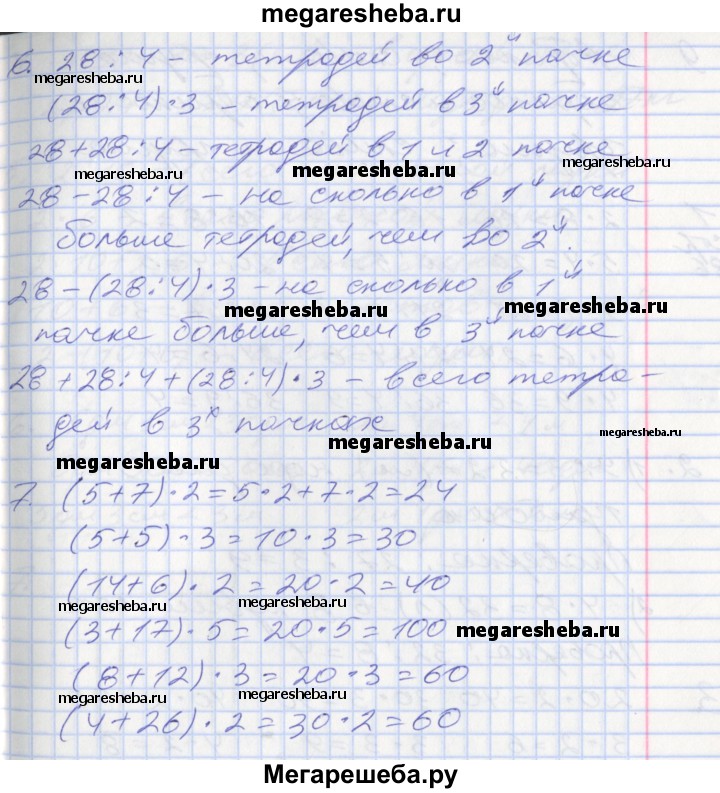 megaresheba.ru
6. 28 : 4 – тетрадей во 2й пачке
megaresheba.ru
(28 : 4) · 3 – тетрадей в 3й пачке
28 + 28 : 4 – тетрадей в 1 и 2 пачке
megaresheba.ru megaresheba.ru megaresheba.ru
28 – 28 : 4 – на сколько в 1й пачке
больше тетрадей, чем во 2й.
28 – (28 : 4) · 3 – на сколько в 1й
megaresheba.ru megaresheba.ru
пачке больше, чем в 3й пачке
28 + 28 : 4 + (28 : 4) · 3 – всего тетра-
дей в 3х пачках
megaresheba.ru megaresheba.ru megaresheba.ru
7. (5 + 7) · 2 = 5 · 2 + 7 · 2 = 24
(5 + 5) · 3 = 10 · 3 = 30
(14 + 6) · 2 = 20 · 2 = 40
megaresheba.ru megaresheba.ru
(3 + 17) · 5 = 20 · 5 = 100 megaresheba.ru
(8 + 12) · 3 = 20 · 3 = 60
megaresheba.ru megaresheba.ru
(4 + 26) · 2 = 30 · 2 = 60
Мегарешеба.ру